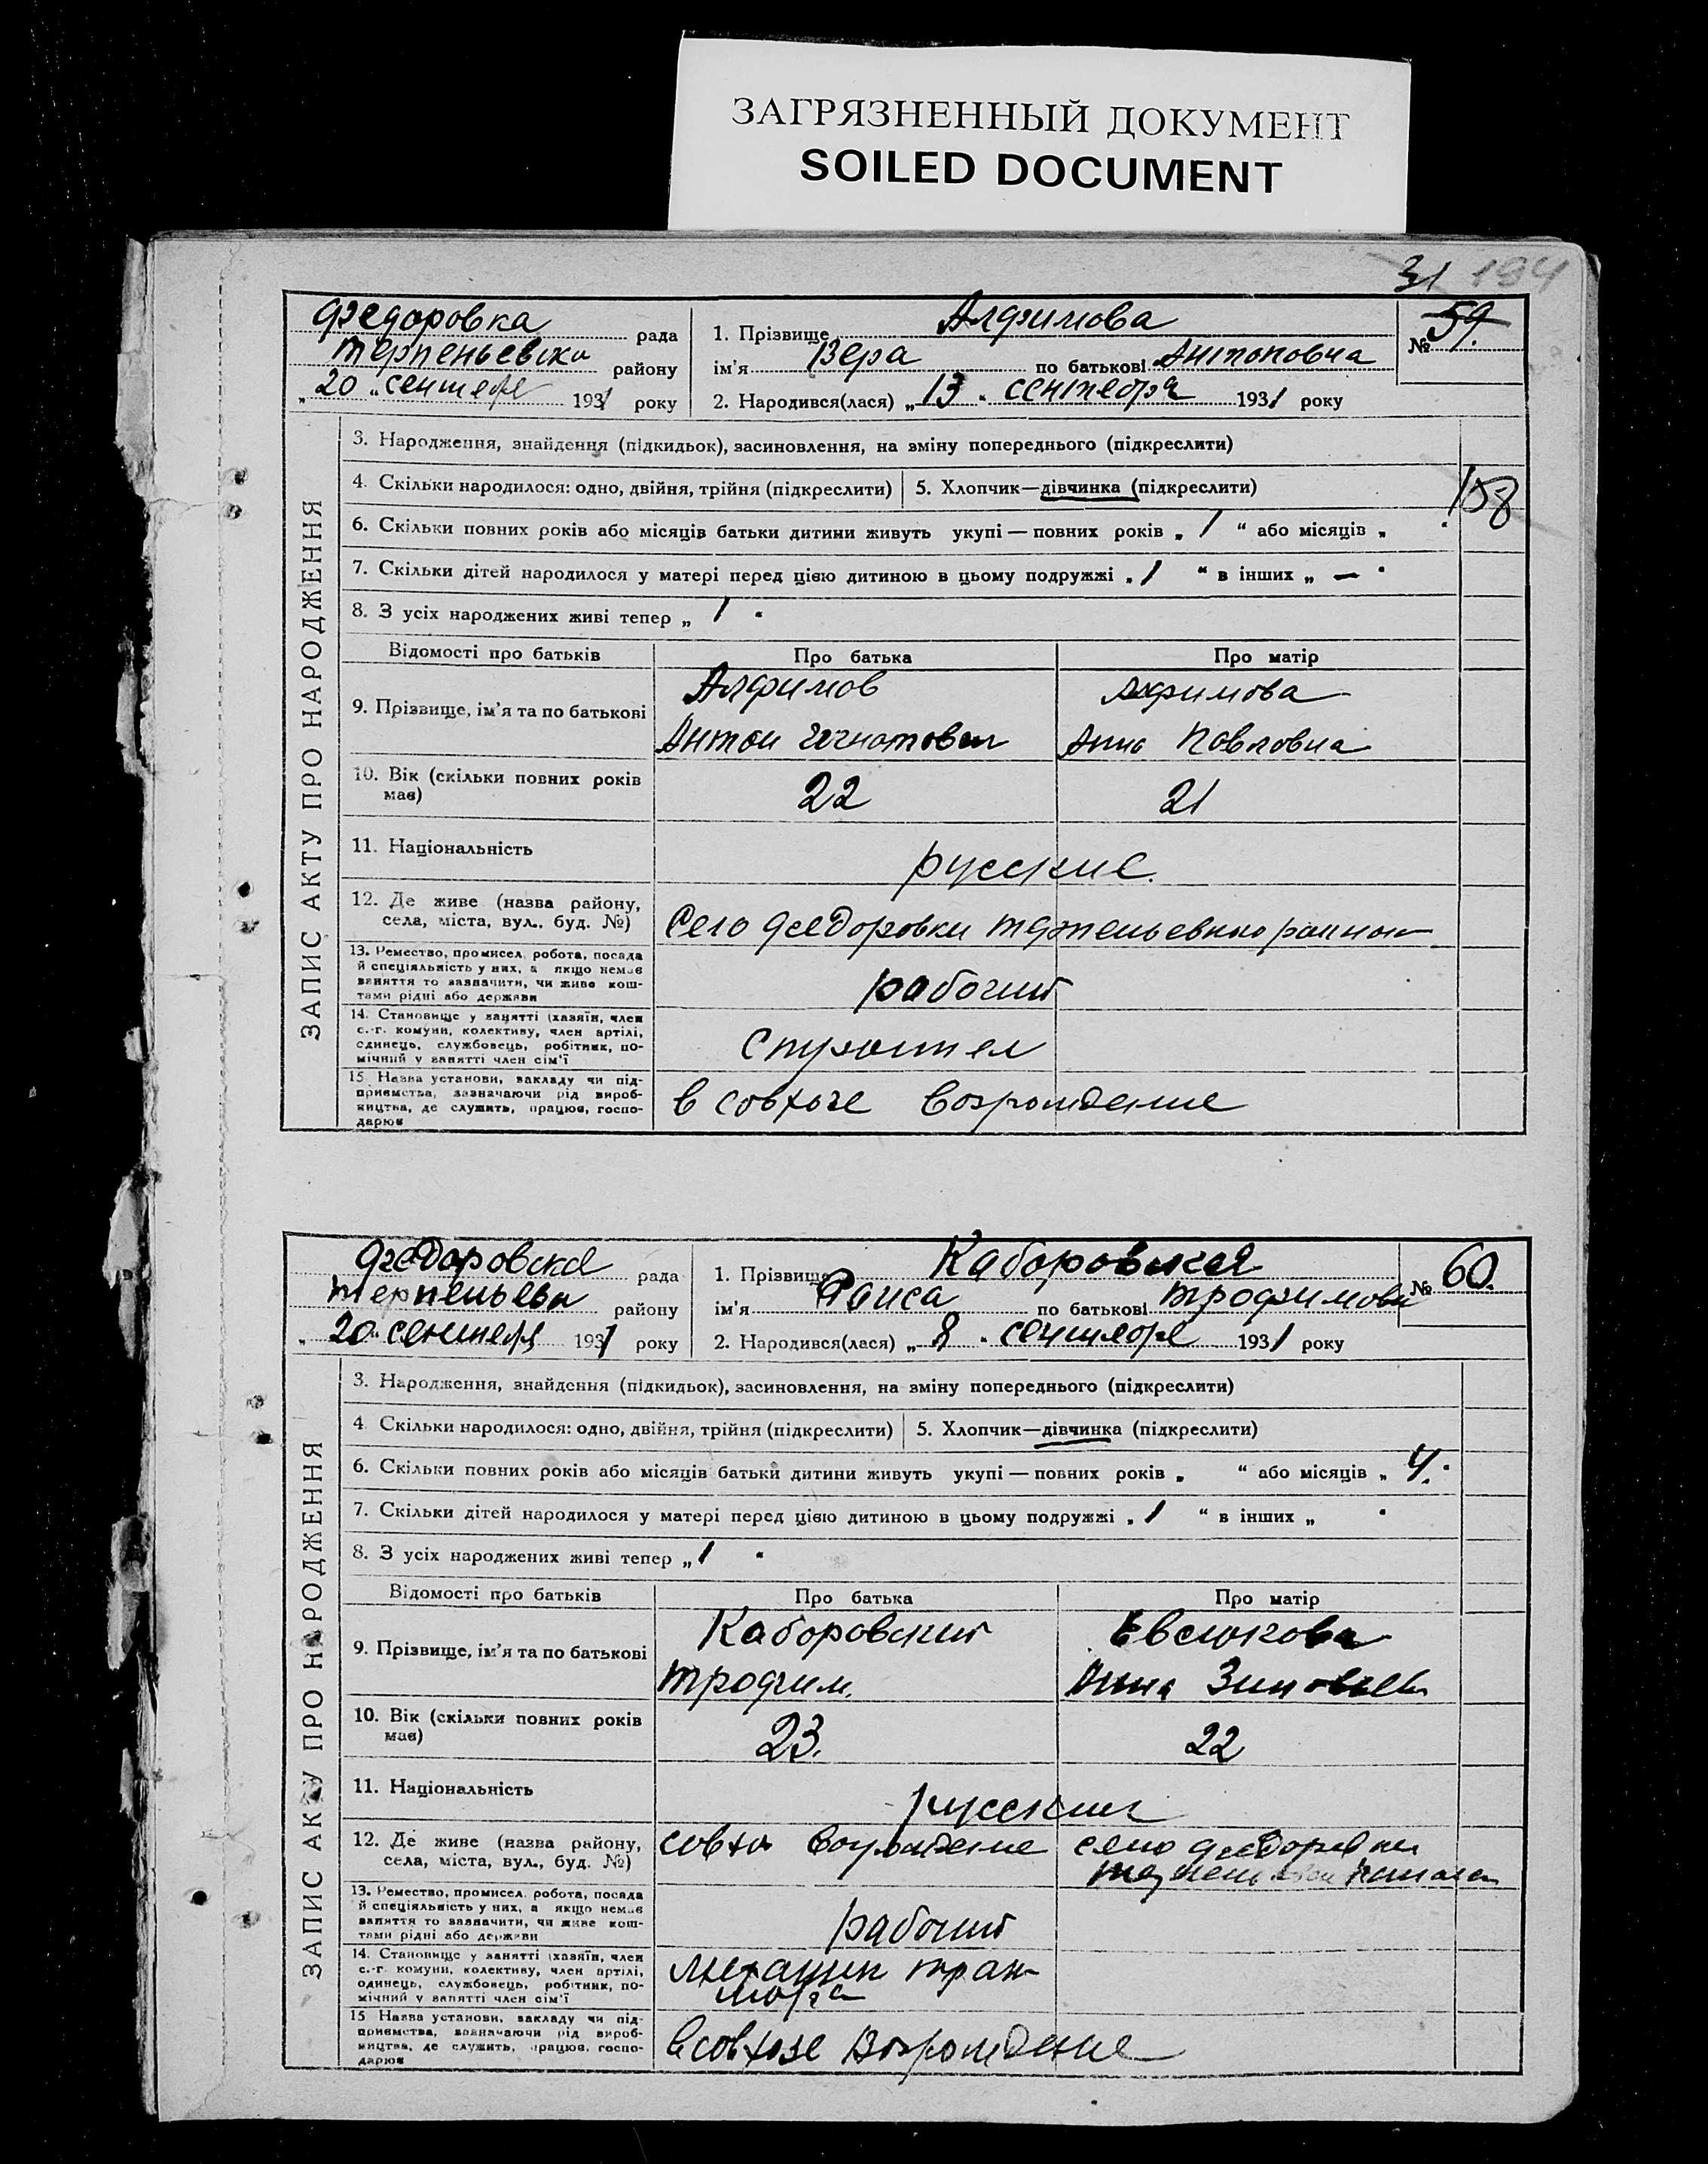 ЗАГРЯЗНЕННЫЙ ДОКУМЕНТ
SOILED DOCUMENT
31 194
ЗАПИС АКТУ ПРО НАРОДЖЕННЯ
Федоровка рада
Терпеньевска району
„20“ сентебре 1931 року
1. Прізвище Алфимова
ім’я Вера по батькові Антоновна
2. Народився(лася) „13“ сентебря 1931 року
№ 59.
3. Народження, знайдення (підкидьок), засиновлення, на зміну попереднього (підкреслити)
4. Скільки народилося: одно, двійня, трійня (підкреслити) 5. Хлопчик—дівчинка (підкреслити)
158
6. Скільки повних років або місяців батьки дитини живуть укупі — повних років „ 1 “ або місяців „
7. Скільки дітей народилося у матері перед цією дитиною в цьому подружжі „ 1 “ в інших „ — “
8. З усіх народжених живі тепер „ 1 “
Відомості про батьків Про батька Про матір
9. Прізвище, ім’я та по батькові
Алфимов Алфимова
Антон Анна Павловна
10. Вік (скільки повних років має) 22 21
11. Національність русские.
12. Де живе (назва району, села, міста, вул., буд. №)
Село Федоровки
13. Ремество, промисел, робота, посада
й спеціяльність у них, а якщо немає
заняття то зазначити, чи живе кош-
тами рідні або держави
рабочий
14. Становище у занятті (хазяїн, член
с.-г. комуни, колективу, член артілі,
одинець, службовець, робітник, по-
мічний у занятті член сім’ї
15. Назва установи, закладу чи під-
приємства, зазначаючи рід вироб-
ництва, де служить, працює, госпо-
дарює
в совхозе Возрождение
ЗАПИС АКТУ ПРО НАРОДЖЕННЯ
Федоровка рада
Терпеньевк району
„20“ сентебря 1931 року
1. Прізвище Каборовская
ім’я Раиса по батькові Трофимовн
2. Народився(лася) „8“ сентебре 1931 року
№ 60.
3. Народження, знайдення (підкидьок), засиновлення, на зміну попереднього (підкреслити)
4. Скільки народилося: одно, двійня, трійня (підкреслити) 5. Хлопчик—дівчинка (підкреслити)
6. Скільки повних років або місяців батьки дитини живуть укупі — повних років „ “ або місяців „ 4. “
7. Скільки дітей народилося у матері перед цією дитиною в цьому подружжі „ 1 “ в інших „ “
8. З усіх народжених живі тепер „ 1 “
Відомості про батьків Про батька Про матір
9. Прізвище, ім’я та по батькові
Каборовский Евсюкова
Трофим. Анна Зиновьев
10. Вік (скільки повних років має) 23. 22
11. Національність русские
12. Де живе (назва району, села, міста, вул., буд. №)
совхо Возрождение село Федоровки
13. Ремество, промисел, робота, посада
й спеціяльність у них, а якщо немає
заняття то зазначити, чи живе кош-
тами рідні або держави
рабочий
14. Становище у занятті (хазяїн, член
с.-г. комуни, колективу, член артілі,
одинець, службовець, робітник, по-
мічний у занятті член сім’ї
механик
15 Назва установи, закладу чи під-
приємства, зазначаючи рід вироб-
ництва, де служить, працює, госпо-
дарює
в совхозе Возрождение